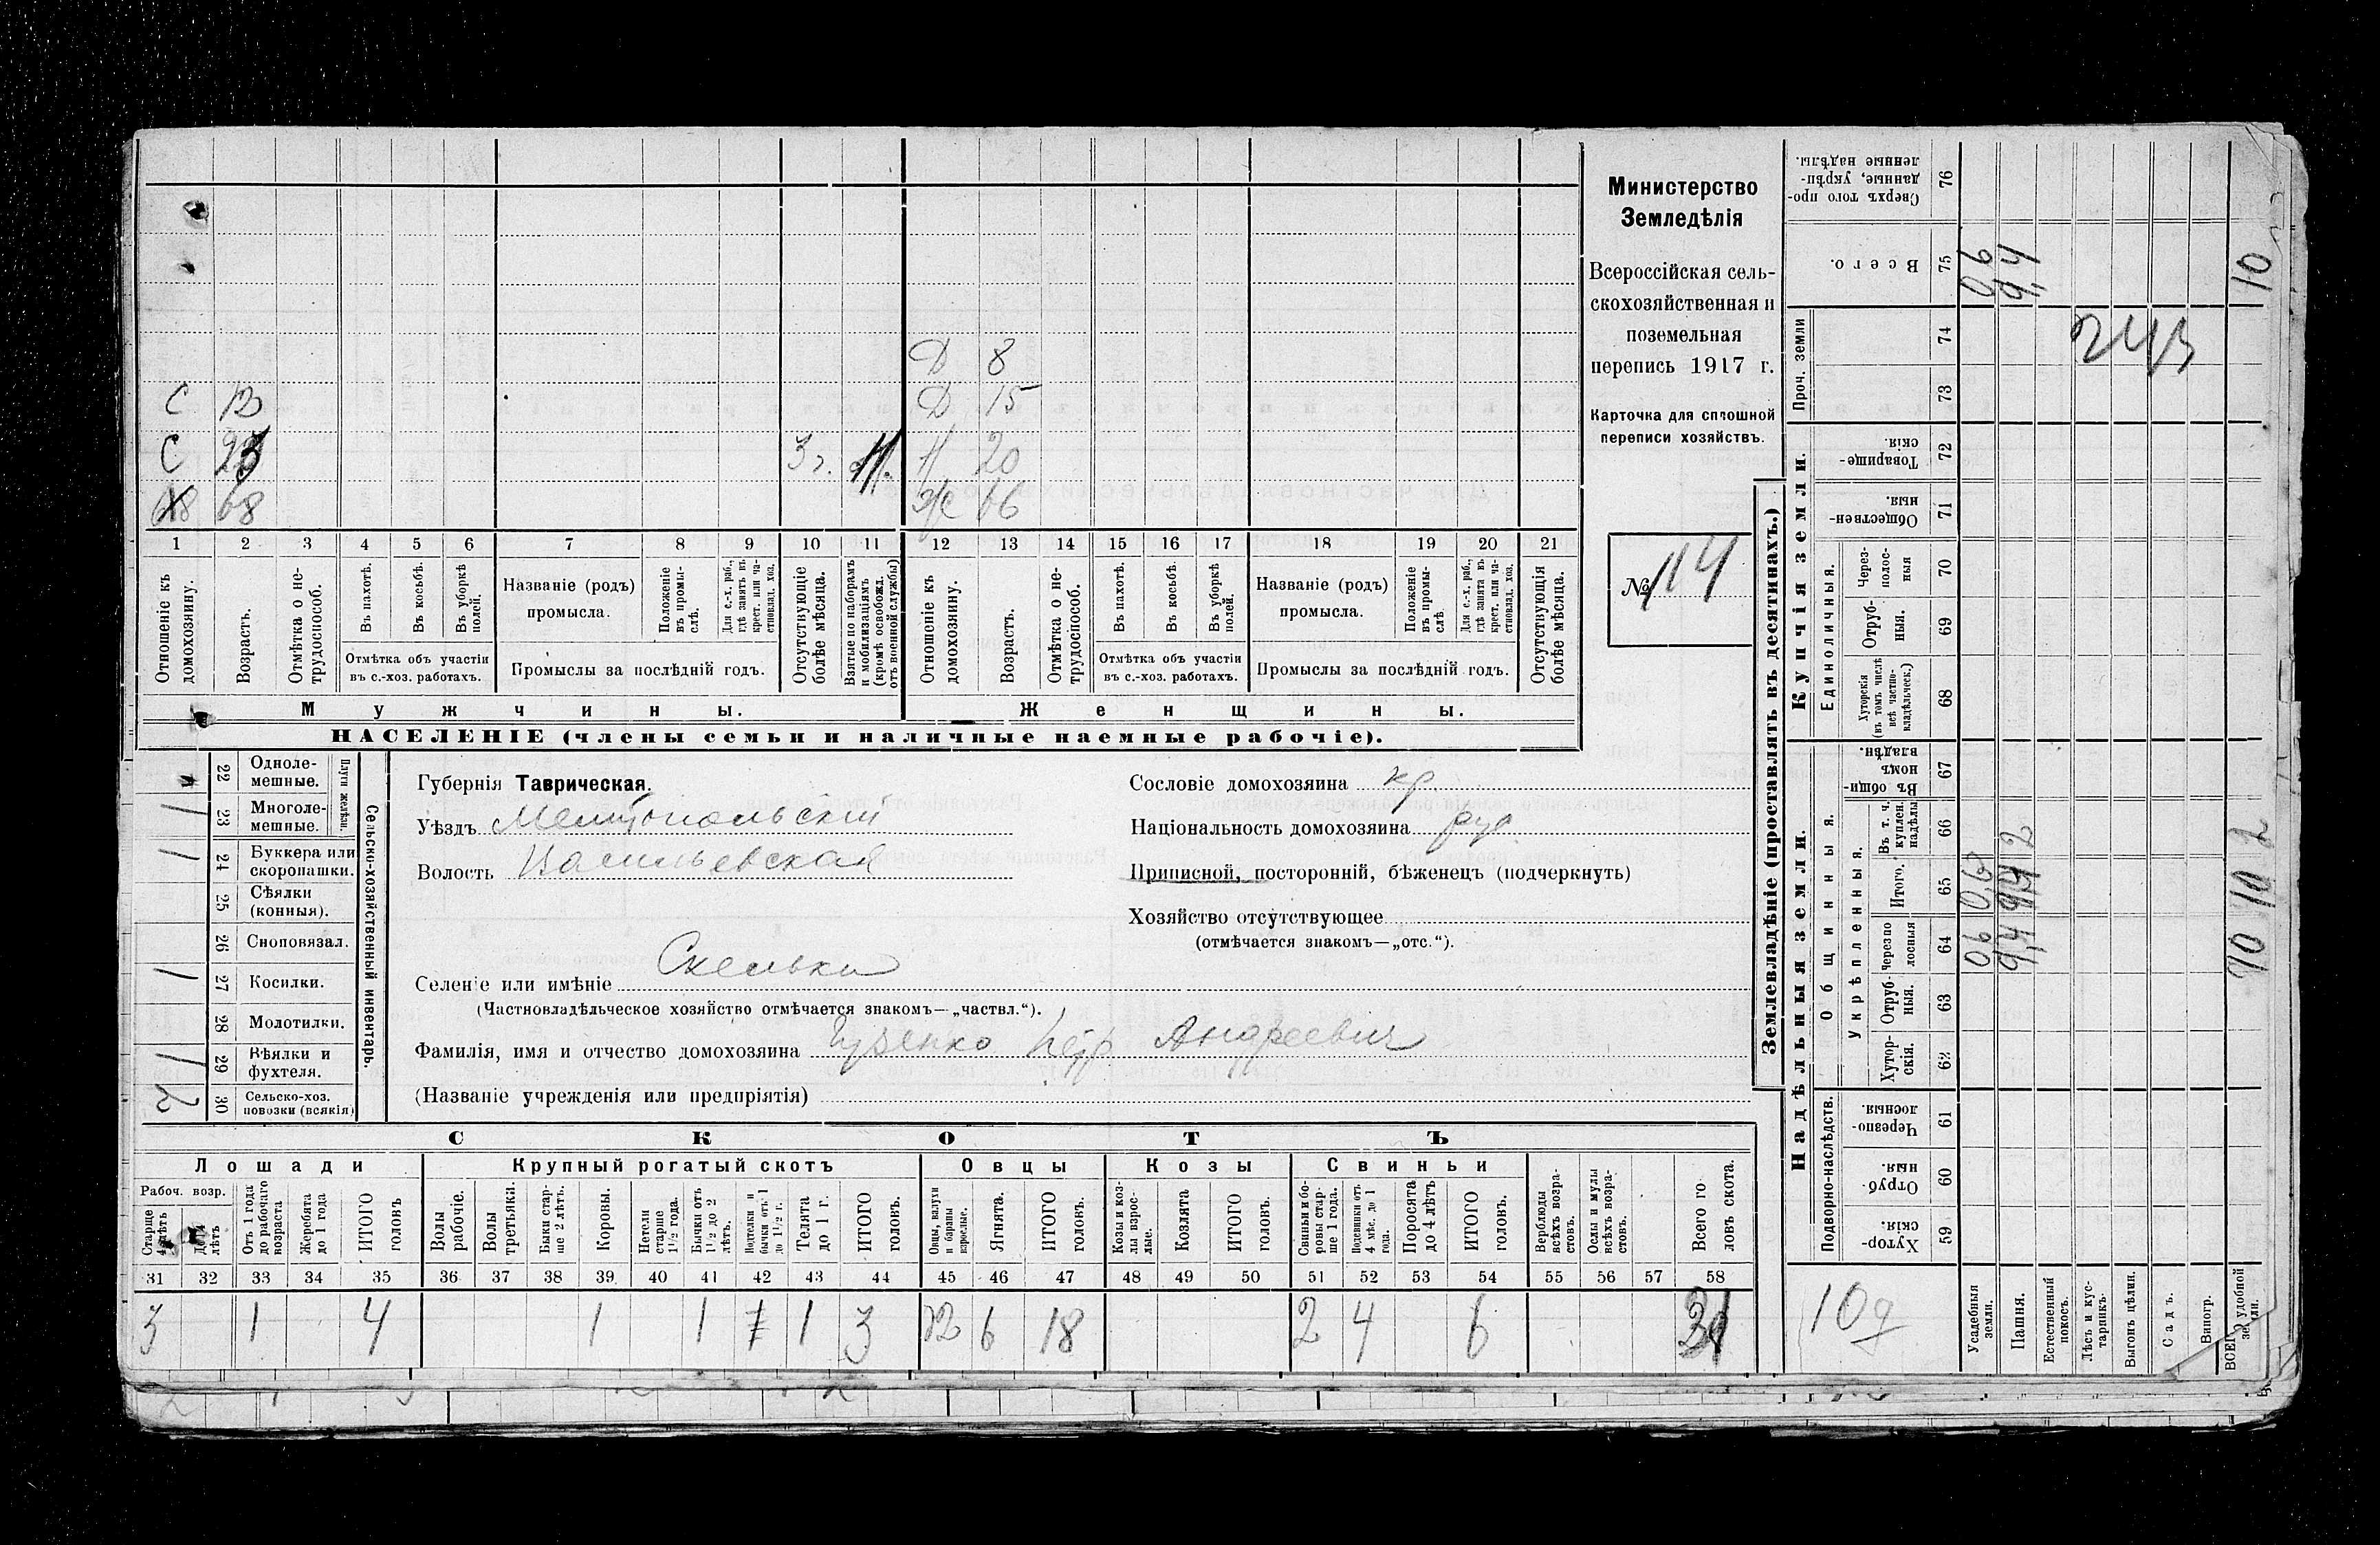 Д 8
С 13 Д 15
С 23 3 г. Н 20
Х 68 Ж 66
1 2 3 4 5 6 7 8 9 10 11 12 13 14 15 16 17 18 19 20 21
Отношеніе къ домохозяину.
Возрастъ.
Отмѣтка о нетрудоспособ.
Въ пахотѣ.
Въ косьбѣ.
Въ уборкѣ полей.
Отмѣтка объ участіи
въ с.-хоз. работахъ.
Названіе (родъ)
промысла.
Положеніе въ промыслѣ.
Для с.-х. раб., гдѣ занятъ въ крест. или частновлад. хоз.
Промыслы за послѣдній годъ.
Отсутствующіе болѣе мѣсяца.
Взятые по наборамъ и мобилизаціямъ (кромѣ освобожд. отъ военной службы)
Отношеніе къ домохозяину.
Возрастъ.
Отмѣтка о нетрудоспособ.
Въ пахотѣ.
Въ косьбѣ.
Въ уборкѣ полей.
Отмѣтка объ участіи
въ с.-хоз. работахъ.
Названіе (родъ)
промысла.
Положеніе въ промыслѣ.
Для с.-х. раб., гдѣ занята въ крест. или частновлад. хоз.
Промыслы за послѣдній годъ.
Отсутствующія болѣе мѣсяца.
Мужчины. Женщины.
НАСЕЛЕНІЕ (члены семьи и наличные наемные рабочіе).
Министерство
Земледѣлія
Всероссійская сель-
скохозяйственная и
поземельная
перепись 1917 г.
Карточка для сплошной
переписи хозяйствъ.
№ 114
Сельско-хозяйственный инвентарь.
Плуги желѣзн.
22 Одноле-
мешные.
1 23 Многоле-
мешные.
1 24 Буккера или
скоропашки.
25 Сѣялки
(конныя).
26 Сноповязал.
1 27 Косилки.
28 Молотилки.
1 29 Вѣялки и
фухтеля.
2 30 Сельско-хоз.
повозки (всякія)
Губернія Таврическая.
Уѣздъ Мелитопольскій
Волость Васильевская
Селеніе или имѣніе Скельки
(Частновладѣльческое хозяйство отмѣчается знакомъ—„частвл.“).
Фамилія, имя и отчество домохозяина Гузенко Петр Андреевич
(Названіе учрежденія или предпріятія)
Сословіе домохозяина кр
Національность домохозяина рус
Приписной, посторонній, бѣженецъ (подчеркнуть)
Хозяйство отсутствующее
(отмѣчается знакомъ—„отс.“).
СКОТЪ
Лошади Крупный рогатый скотъ Овцы Козы Свиньи
Рабоч. возр.
Старше 4 лѣтъ
До 4 лѣтъ
Отъ 1 года до рабочаго возраста
Жеребята до 1 года
ИТОГО головъ
Волы рабочіе.
Волы третьяки.
Быки старше 2 лѣтъ.
Коровы.
Нетели старше 1½ года.
Бычки отъ 1½ до 2 лѣтъ.
Подтелки и бычки отъ 1 до 1½ г.
Телята до 1 г.
ИТОГО головъ.
Овцы, валухи и бараны взрослые.
Ягнята.
ИТОГО головъ.
Козы и козлы взрослые.
Козлята
ИТОГО головъ.
Свиньи и боровы старше 1 года.
Подсвинки отъ 4 мѣс. до 1 года.
Поросята до 4 лѣтъ
ИТОГО головъ.
Верблюды всѣхъ возрастовъ.
Ослы и мулы всѣхъ возрастовъ.
Всего головъ скота.
31 32 33 34 35 36 37 38 39 40 41 42 43 44 45 46 47 48 49 50 51 52 53 54 55 56 57 58
3 1 4 1 1 1 3 12 6 18 2 4 6 31
Землевладѣніе (проставлять въ десятинахъ.)
Надѣльныя земли. Купчія земли. Проч. земли
Подворно-наслѣдств.
Общинныя.
Укрѣпленныя.
Единоличныя.
59 Хуторскія.
60 Отрубныя.
61 Черезполосныя.
62 Хуторскія.
63 Отрубныя.
64 Черезполосныя
65 Итого.
66 Въ т. ч. куплен. надѣлы
67 Въ общинномъ владѣн.
68 Хуторскія (въ томъ числѣ всѣ частновладѣльческ.)
69 Отрубныя.
70 Черезполосныя
71 Общественныя.
72 Товарищескія.
73
74
75 Всего.
76 Сверхъ того проданные, укрѣпленные надѣлы.
Усадебныя земли. 06 06 06
Пашня. 9,4 9,4 2 9,4
Естественный покосъ.
Лѣсъ и кустарникъ.
Выгонъ цѣлин.
Садъ.
Виногр.
ВСЕГО удобной земли. 10 10 2 10
243
10 д